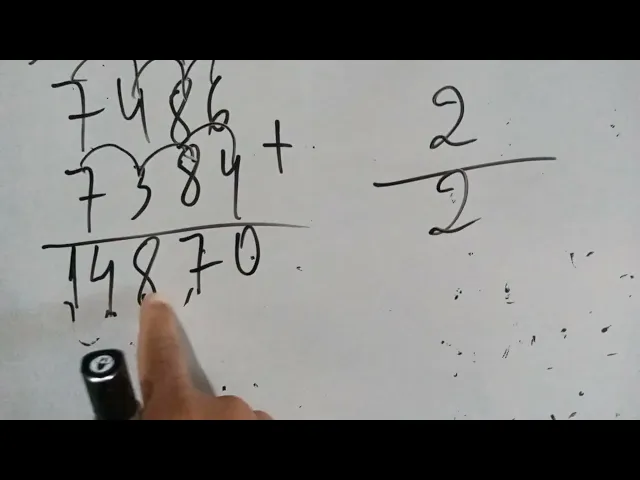 7486
7384 +
14870
2
2